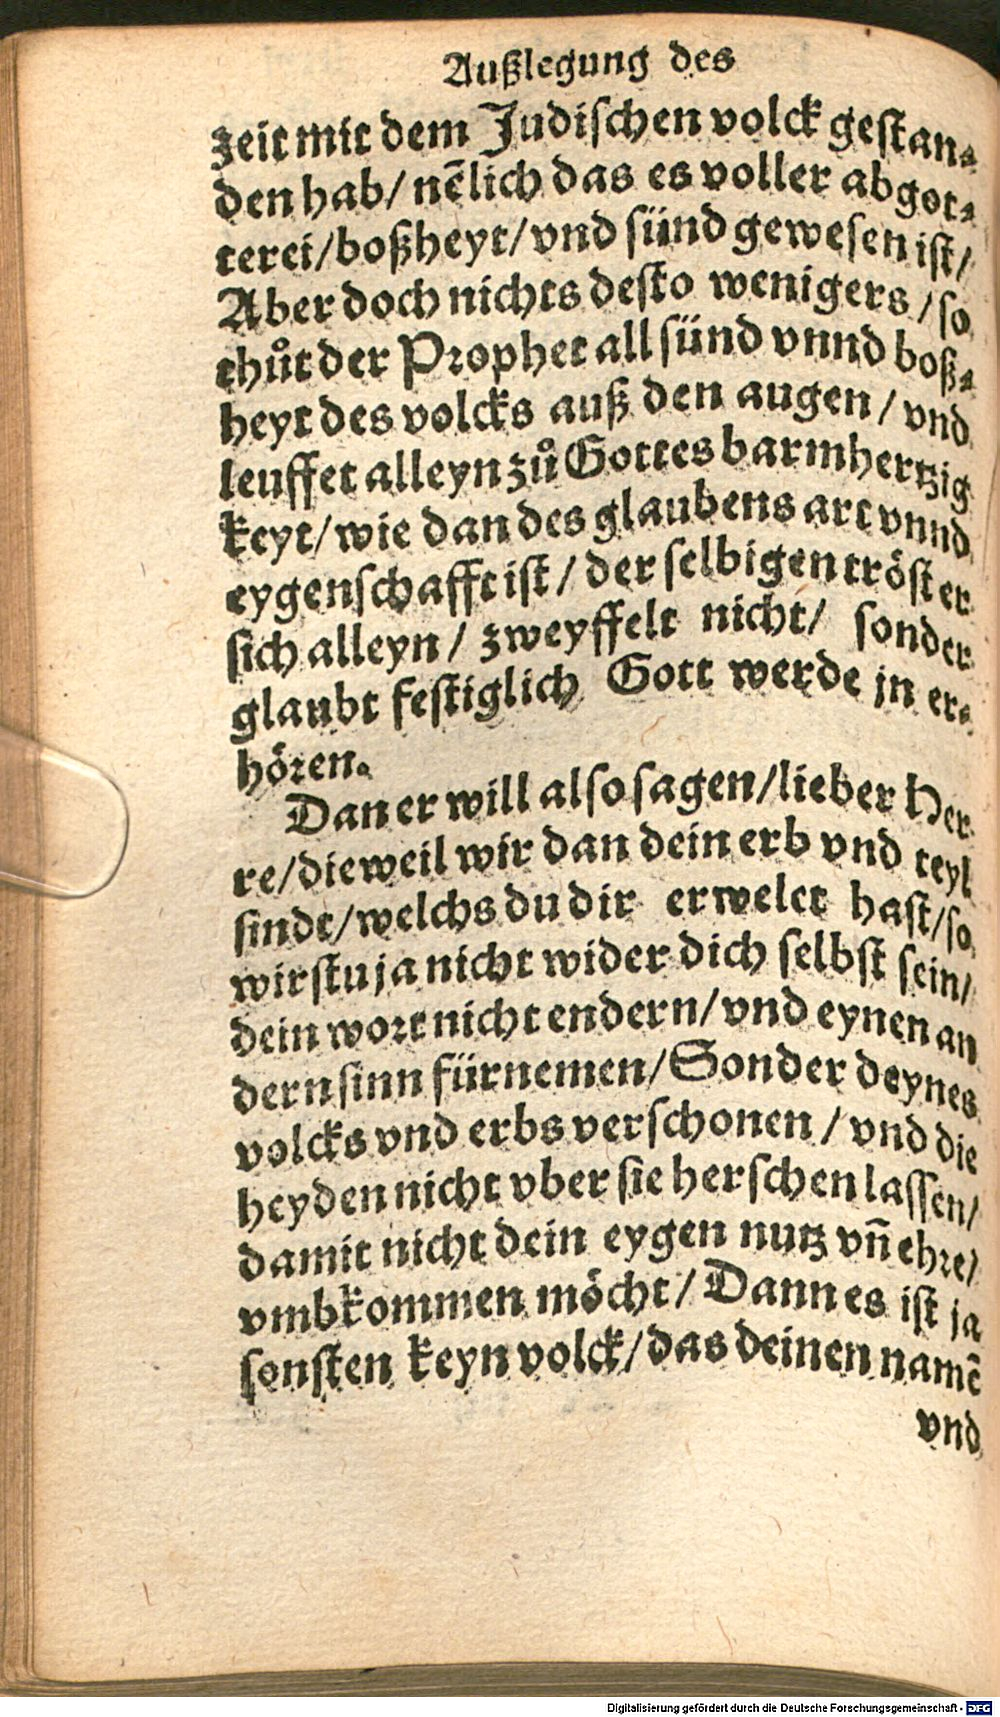 Außlegung des
zeit mit dem Judischen volck gestan⸗
den hab/ nẽlich das es voller abgot⸗
terei/boßheyt/vnd sünd gewesen ist/
Aber doch nichts desto wenigers /so
thůt der Prophet all sünd vnnd boß⸗
heyt des volcks auß den augen/ vnd
leuffet alleyn zů Gottes barmhertzig
keyt/wie dan des glaubens art vnnd
eygenschafft ist/ der selbigen tröst er
sich alleyn/ zweyffelt nicht/ sonder
glaubt festiglich Gott werde jn er⸗
hören.
Dan er will also sagen/lieber Her
re/dieweil wir dan dein erb vnd teyl
sindt/welchs du dir erwelt hast/so
wirstu ja nicht wider dich selbst sein/
dein wort nicht endern/vnd eynen an
dern sinn fürnemen/Sonder deynes
volcks vnd erbs verschonen/vnd die
heyden nicht vber sie herschen lassen/
damit nicht dein eygen nutz vñ ehre/
vmbkommen möcht/ Dann es ist ja
sonsten keyn volck/das deinen namẽ
vnd
Digitalisierung gefördert durch die Deutsche Forschungsgemeinschaft - DFG